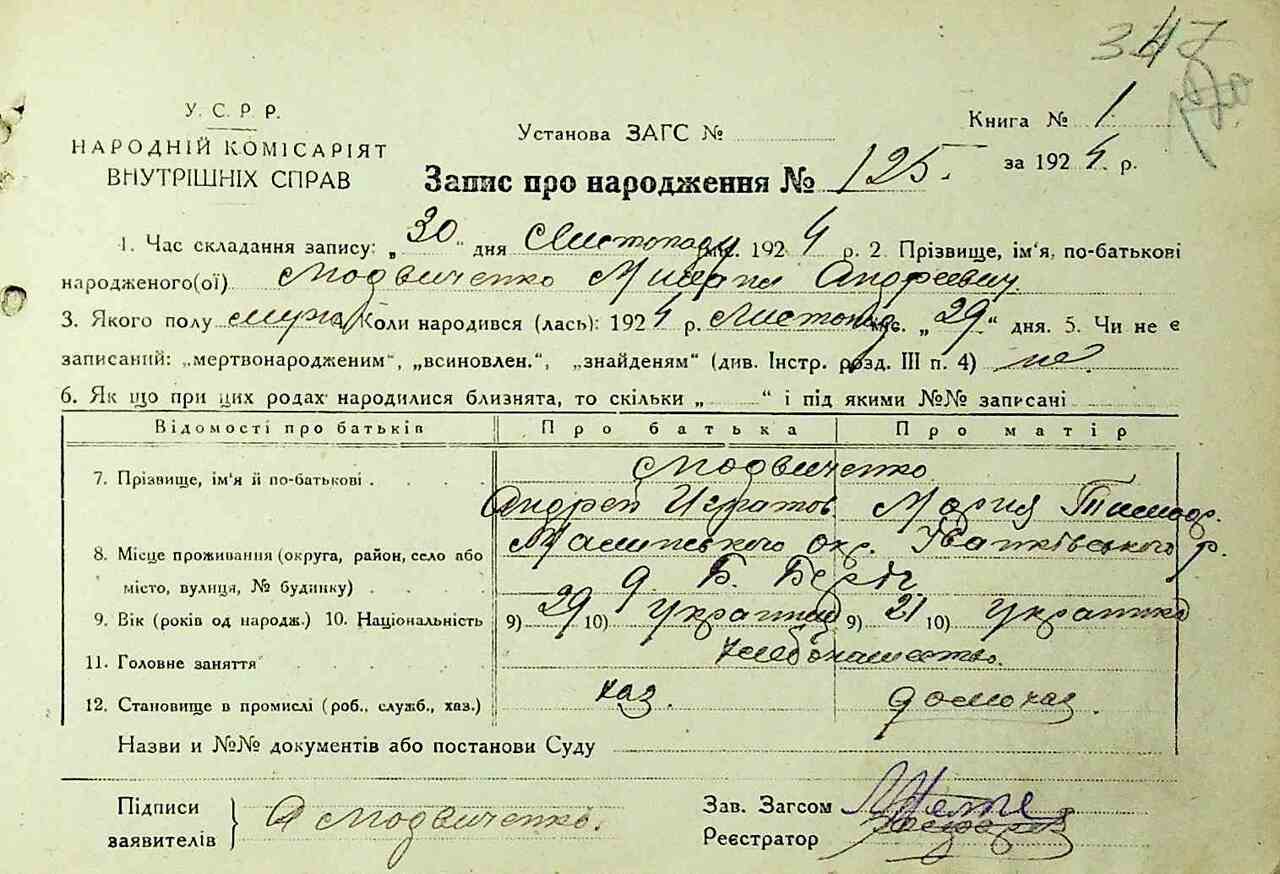 347
У. С. Р. Р.
НАРОДНІЙ КОМІСАРІЯТ
ВНУТРІШНІХ СПРАВ
Установа ЗАГС №
Книга № 1
за 1924 р.
Запис про народження № 125.
1. Час складання запису: „30" дня Листопаду міс. 1924 р. 2. Прізвище, ім'я, по-батькові
народженого(ої) Модвиченко Андреевич
3. Якого полу муж. 4. Коли народився (лась): 1924 р. Листопад міс. „29" дня. 5. Чи не є
записаний: „мертвонародженим", „всиновлен.", „знайденям" (див. Інстр. розд. III п. 4) не
6. Як що при цих родах народилися близнята, то скільки „ " і під якими №№ записані
Відомості про батьків Про батька Про матір
7. Прізвище, ім'я й по-батькові . . . . Модвиченко
Андрей Игнатов Мария Тимофр.
8. Місце проживання (округа, район, село або місто, вулиця, № будинку) . . . Малинського окр. Іванківського р.
Б.
9. Вік (років од народж.) 10. Національність 9) 29 10) 9) 21 10) украинка
11. Головне заняття хлебопашество.
12. Становище в промислі (роб., служб., хаз.) хаз. домохаз.
Назви и №№ документів або постанови Суду
Підписи заявителів А Модвиченко.
Зав. Загсом
Реєстратор